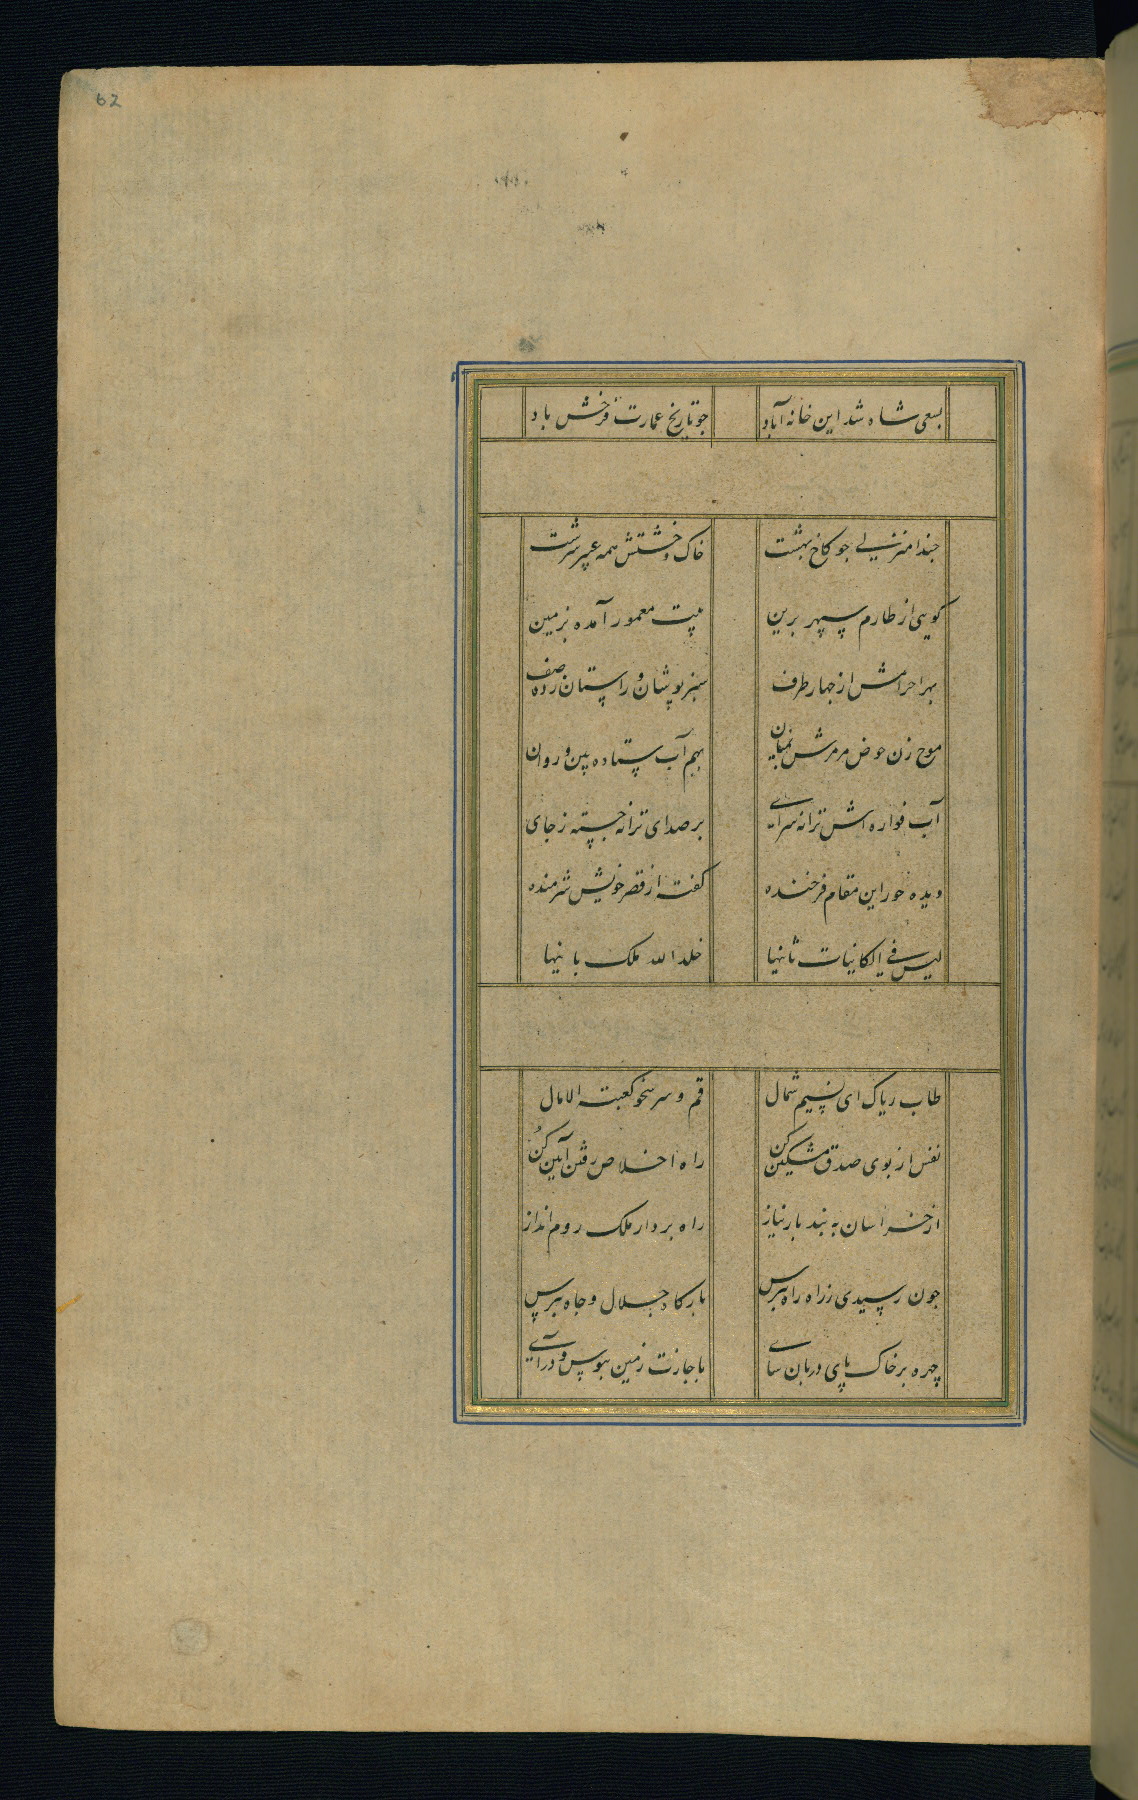 62
بسعی شاه شد این خانه آباد جو تاریخ عمارت فرخش باد
حبذا منزلی جو کاخ بهشت خاک و خشتش همه عبیر سرشت
کویی از طارم سپهر برین بیت معمور آمده بزمین
بهر احرامش از جهار طرف سبزپوشان و راستان زده صف
موج زن حوض مرمرش بمیان بهم آب ستاده بین و روان
آب فواره اش ترانه سرای بر صدای ترانه جسته ز جای
دیده حور این مقام فرخنده کفته از قصر خویش شرمنده
لیس فی الکائنات ثانیها خلد الله ملک بانیها
طاب ریاک ای نسیم شمال قم و سر نحو کعبة الامال
نفس از بوی صدق مشکین کن راه اخلاص رفتن آیین کن
از خراسان به بند بار نیاز راه بردار ملک روم انداز
جون رسیدی ز راه راه بپرس بارکاه جلال و جاه بپرس
چهره بر خاک پای دربان سای باجازت زمین ببوس و درآی